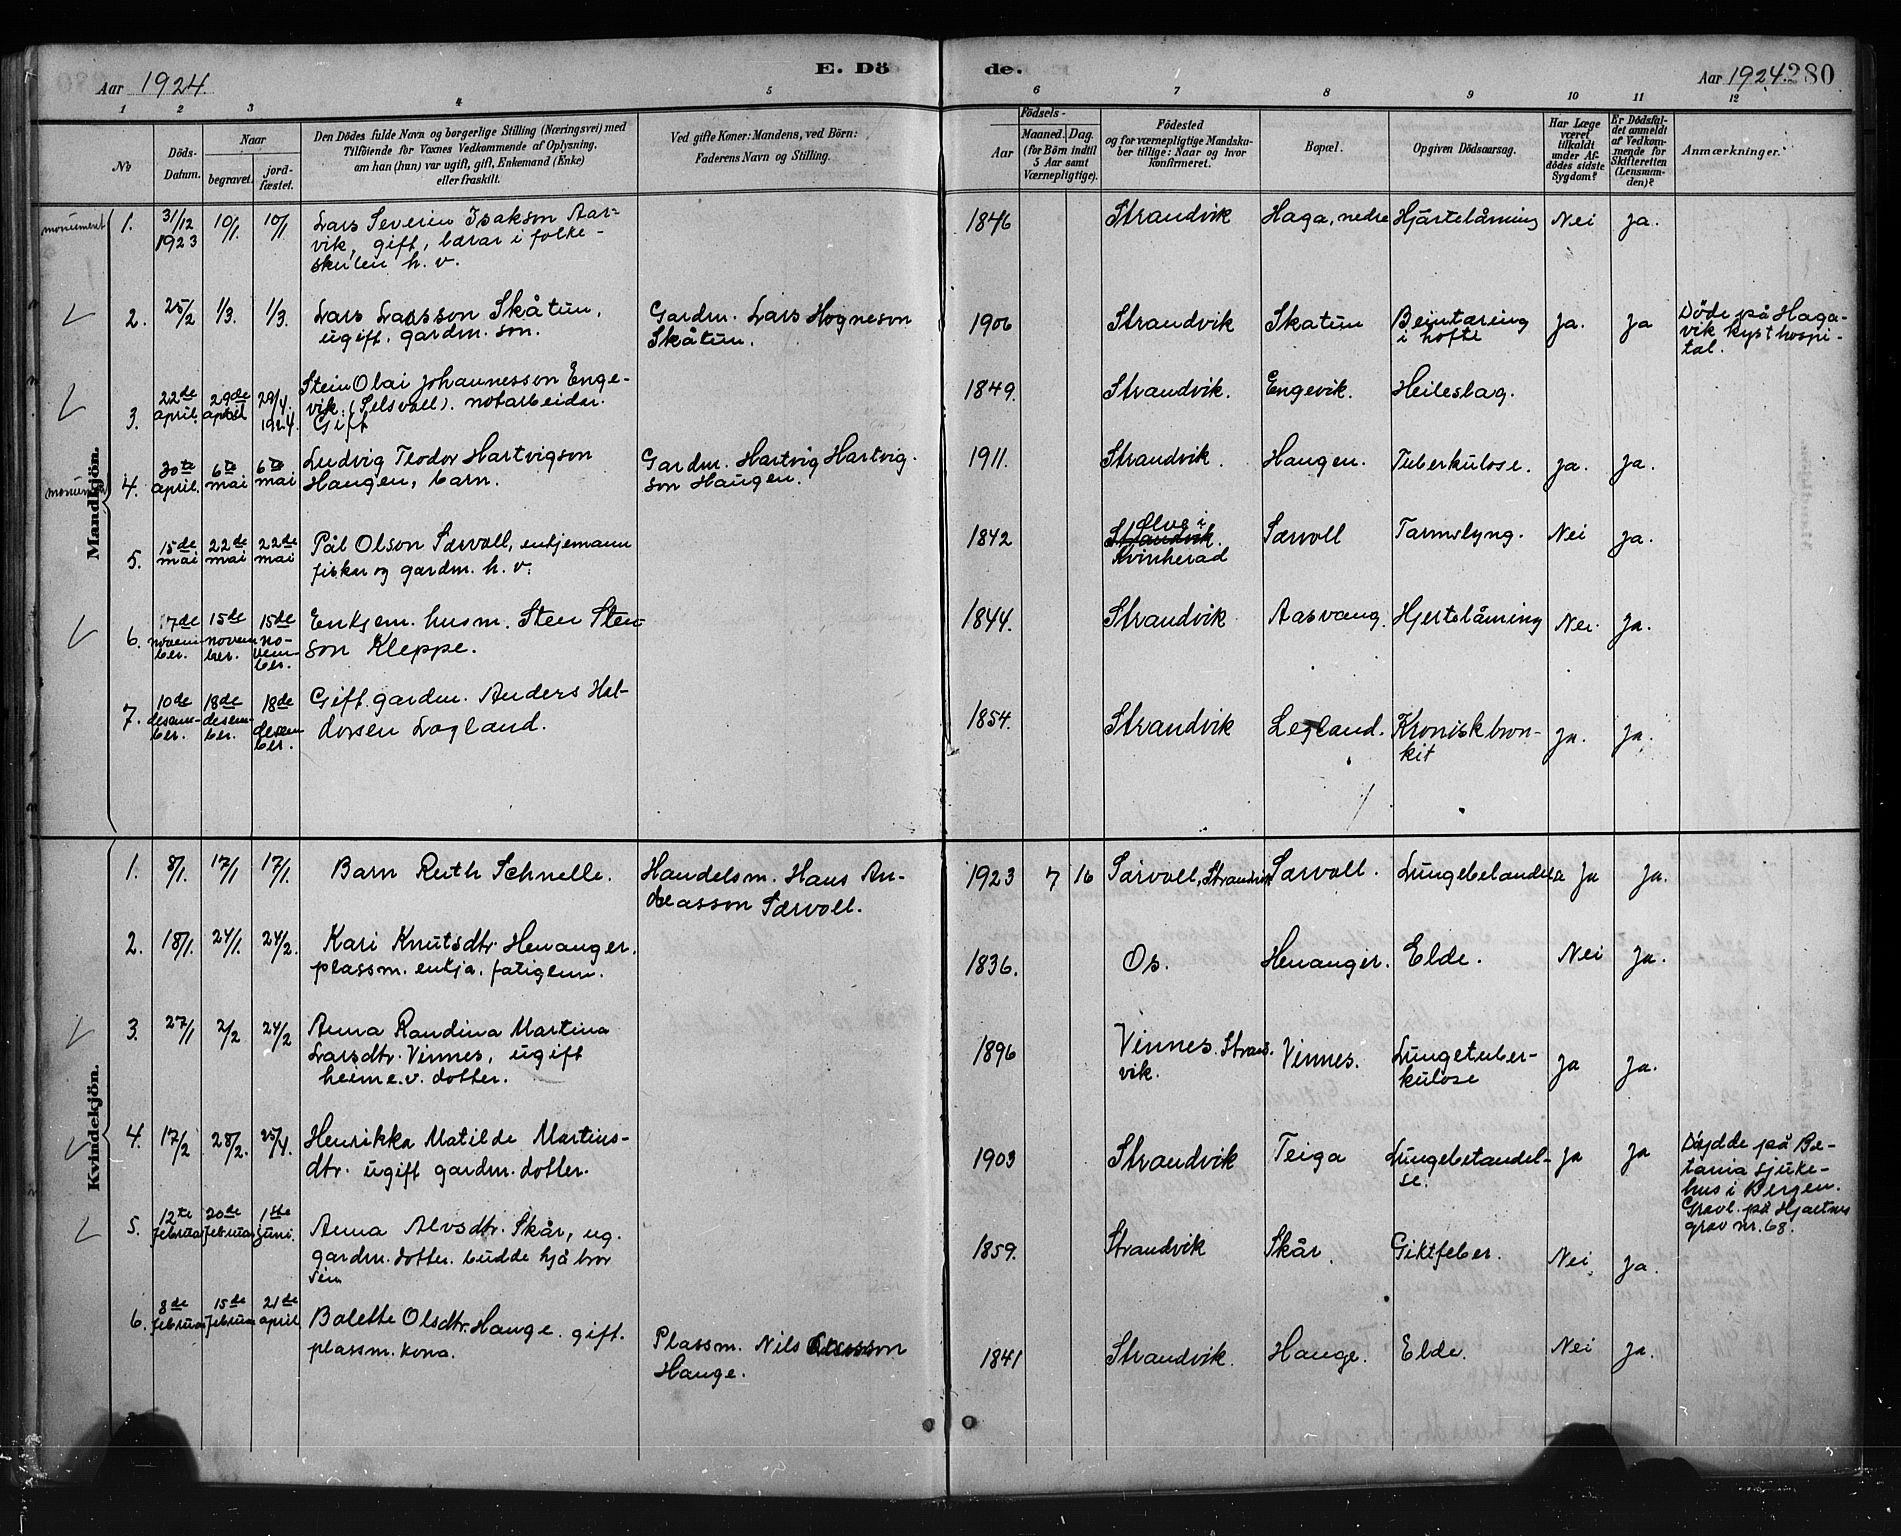 Aar 1924.
E. Döde.
Aar 1924. 280
1 2 3 4 5 6 7 8 9 10 11 12
No
Döds-Datum.
Naar
begravet.
jordfæstet.
Den Dödes fulde Navn og borgerlige Stilling (Næringsvei) med
Tilföiende for Voxnes Vedkommende af Oplysning,
om han (hun) var ugift, gift, Enkemand (Enke)
eller fraskilt.
Ved gifte Koner: Mandens, ved Börn:
Faderens Navn og Stilling.
Födsels-
Aar
Maaned. Dag.
(for Börn indtil
5 Aar samt
Værnepligtige).
Födested
og for værnepligtige Mandskaber tillige: Naar og hvor
konfirmeret.
Bopæl.
Opgiven Dödsaarsag.
Har Læge
været
tilkaldt
under Afdödes sidste
Sygdom?
Er Dödsfaldet anmeldt
af Vedkommende for
Skifteretten
(Lensmanden)?
Anmærkninger.
Mandkjön.
monument 1. 31/12 1923 10/1 10/1 Lars Severin Isakson Aar-
vik, gift, lærar i folke-
skulen h. v.
1846 Strandvik Haga, nedre Hjartelåming Nei Ja.
2. 25/2 1/3. 1/3. Lars Larsson Skåtun,
ugift. gardm. son.
Gardm. Lars Hogneson
Skåtun.
1906 Strandvik Skatun Beintæring
i hofte
Ja. Ja Döde på Haga-
vik kysthospi-
tal.
3. 22de april. 29de april 29/4. 1924. Stein Olai Johannesson Enge-
vik. (Selsvoll). notarbeidar.
Gift
1849. Strandvik. Engevik. Heileslag.
monument 4. 30te april. 6te mai 6te mai Ludvig Teodor Hartvigson
Haugen, barn.
Gardm. Hartvig Hartvig-
son Haugen.
1911. Strandvik. Haugen. Tuberkulose. Ja. Ja.
5. 15de mai 22de mai 22de mai Pål Olson Særvoll, enkjemann
fiskar og gardm. h. v.
1842 Ølve i
Strandvik.
Kvinherad
Særvoll Tarmslyng. Nei Ja.
6. 17de november. 15de november. 15de november. Enkjem. husm. Sten Sten-
son Kleppe.
1844. Strandvik Aasvang. Hjertelåming Nei. Ja.
7. 10de desember. 18de desember. 18de desember. Gift. gardm. Anders Hal-
dorsen Løgland.
1854. Strandvik Legland. Kronisk bron-
kit
Ja. Ja.
Kvindekjön.
1. 8/1. 17/1 17/1. Barn Ruth Schnelle. Handelsm. Hans An-
dreasson Særvoll.
1923 7 16 Særvoll, Strandvik Særvoll. Lungebetandelse Ja Ja.
2. 18/1. 24/1. 24/2. Kari Knutsdtr. Henanger.
plassm. enkja. fatigemn.
1836. Os. Henanger. Elde. Nei Ja.
3. 27/1 2/2 24/2 Anna Randina Martina
Larsdtr. Vinnes, ugift
heime.v. dotter.
1896 Vinnes. Strand-
vik.
Vinnes. Lungetuber-
kulose
Ja Ja.
4. 17/2 28/2. 25/4. Henrikka Matilde Martins-
dtr. ugift gardm. dotter.
1903 Strandvik Teiga Lungebetandel-
se.
Ja Ja Döydde på Be-
tania sjuke-
hus i Bergen.
Gravl. på Hjartnes
grav nr. 68.
5. 12te februar 20de februar 1ste juni. Anna Alvsdtr. Skår, ug.
gardm. dotter. budde hjå bror
sin
1859. Strandvik Skår. Giktfeber. Nei Ja.
6. 8de februar 15de februar 21de april Bolette Olsdtr. Hauge. gift.
plassm. kona.
Plassm. Nils
Hauge.
1841 Strandvik. Hauge. Elde. Nei Ja.